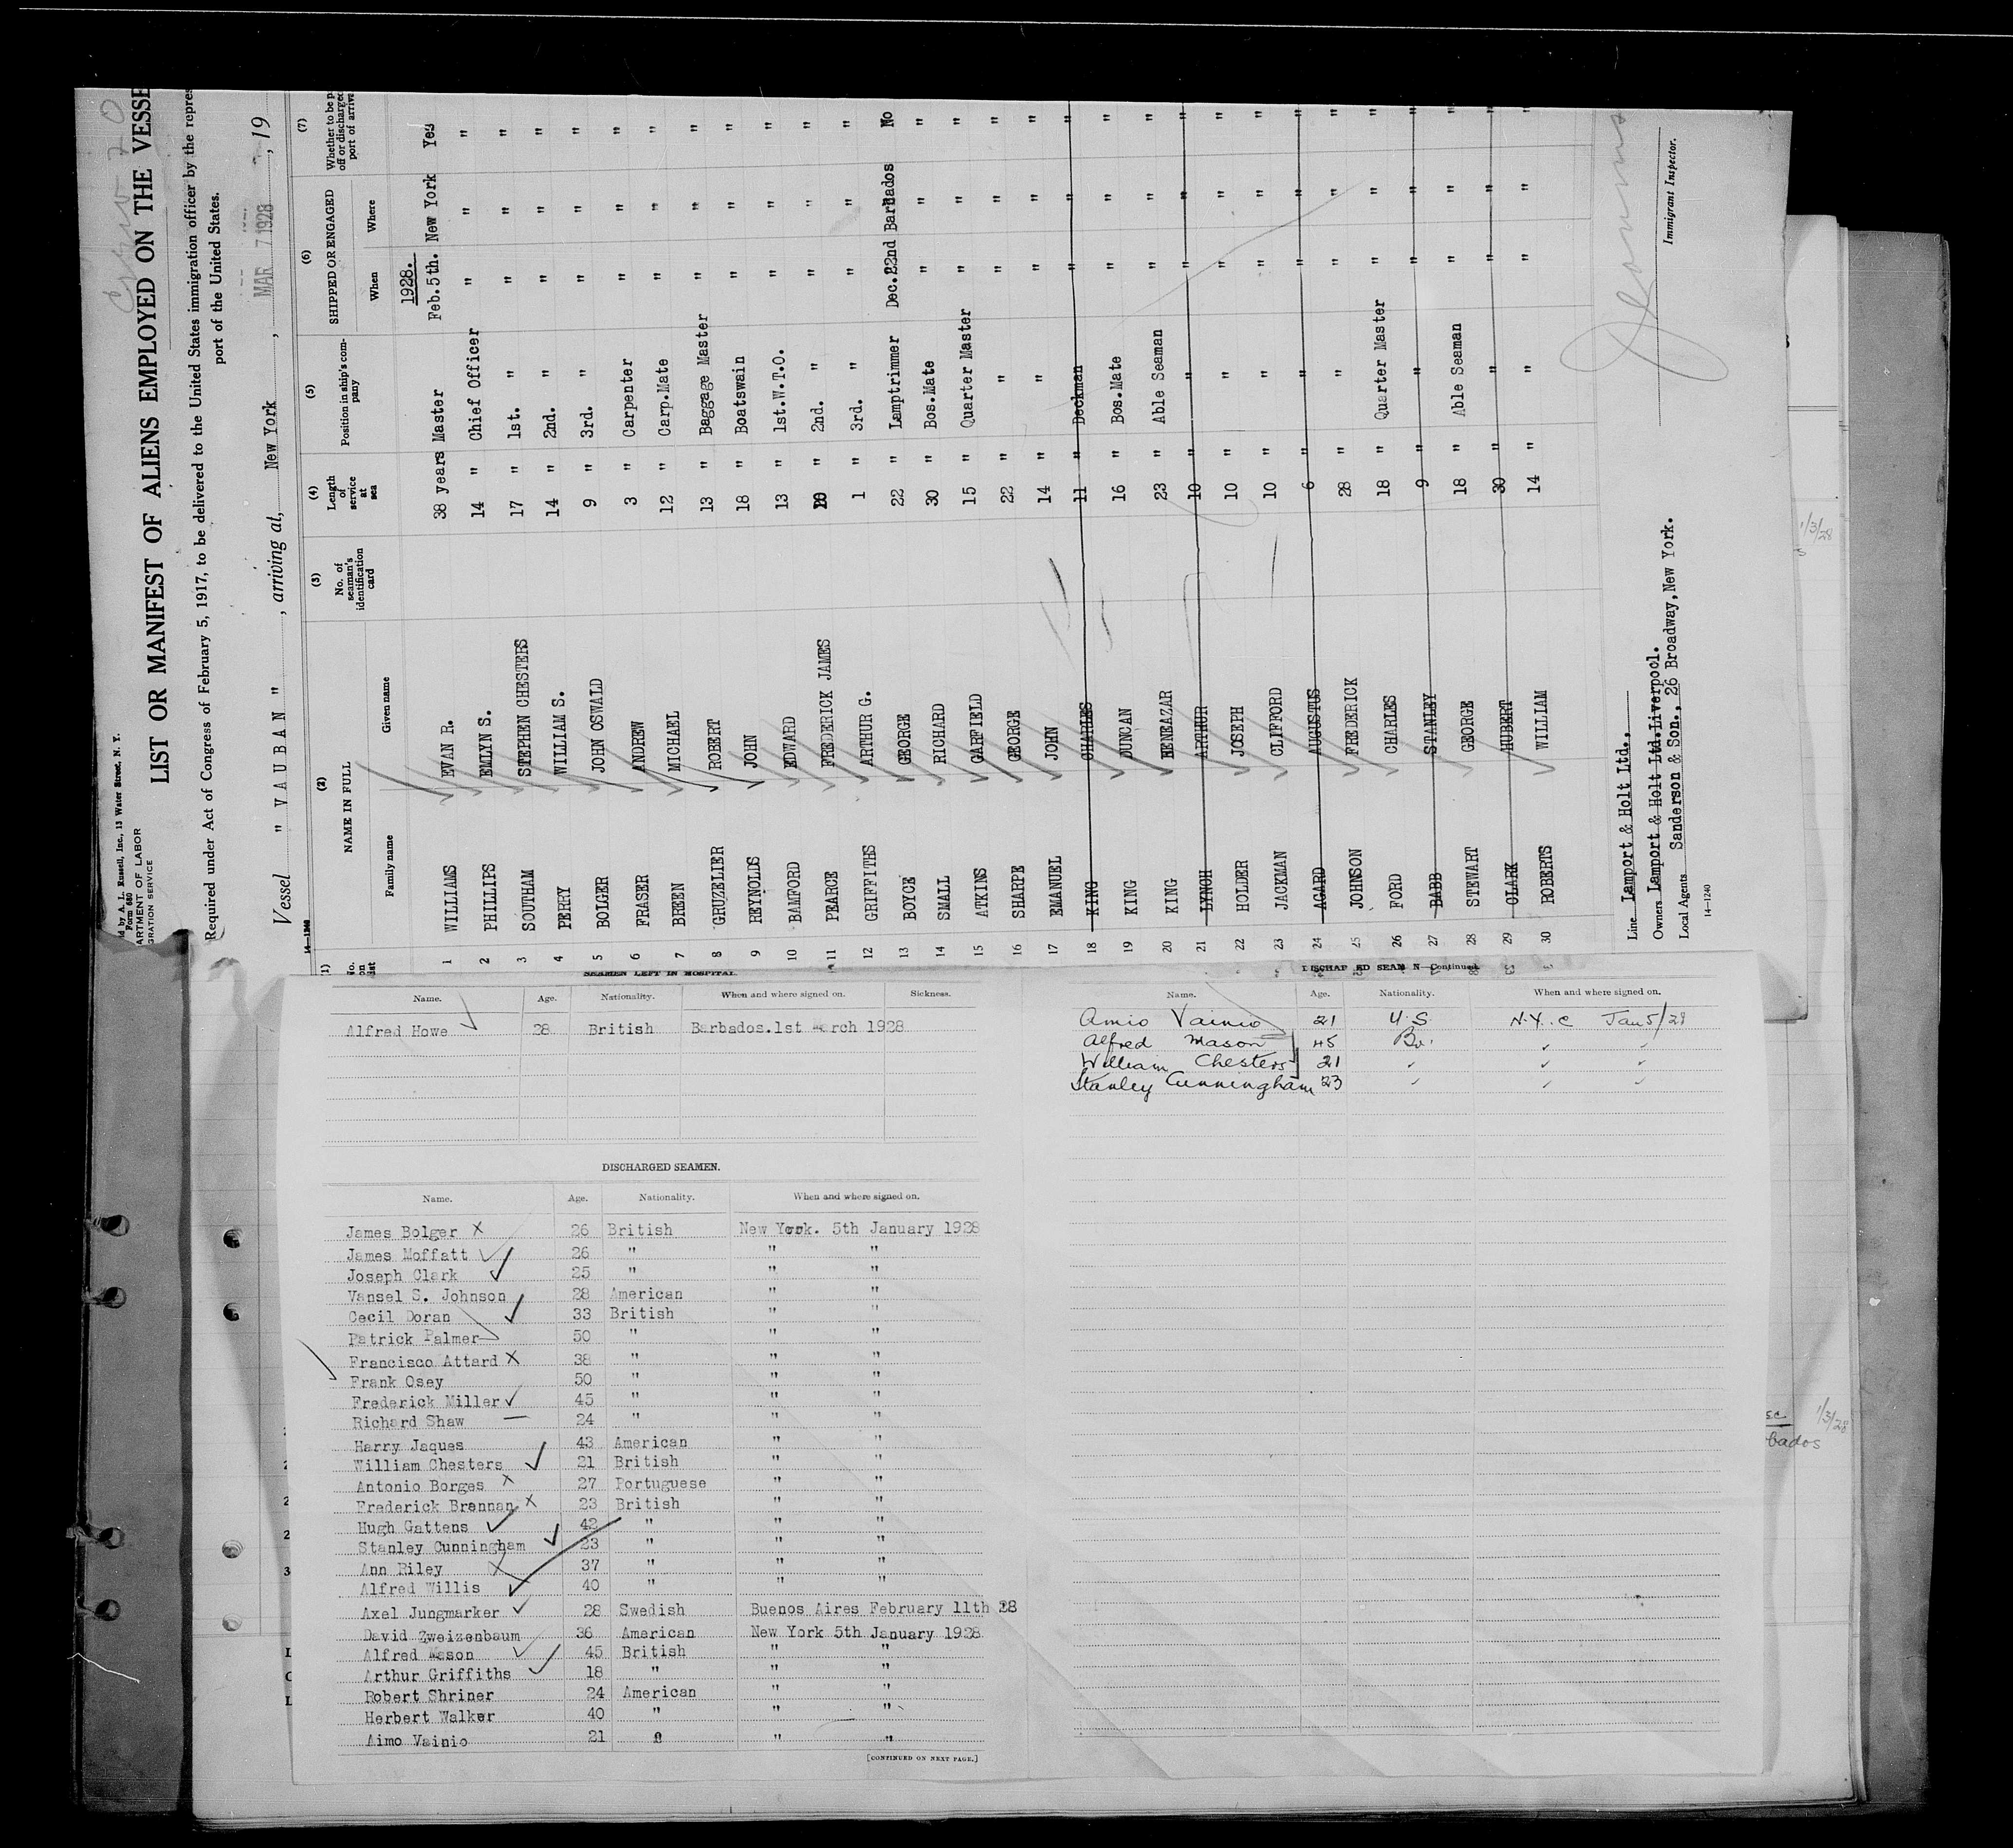 ld by A. L. Russell, Inc., 13 Water Street, N. Y.
Form 680
ARTMENT OF LABOR
GRATION SERVICE
LIST OR MANIFEST OF ALIENS EMPLOYED ON THE VESSE
Required under Act of Congress of February 5, 1917, to be delivered to the United States immigration officer by the repres
port of the United States.
Vessel " VAUBAN ", arriving at, New York, MAR 7 1928, 19
(1) (2) (3) (4) (5) (6) (7)
No. on list NAME IN FULL No. of seaman's identification card Length of service at sea Position in ship's company SHIPPED OR ENGAGED Whether to be p off or discharged port of arriva
Family name Given name When Where
1928.
1 WILLIAMS EVAN R. 38 years Master Feb.5th. New York Yes
2 PHILLIPS EMLYN S. 14 " Chief Officer " " "
3 SOUTHAM STEPHEN CHESTERS 17 " 1st. " " " "
4 PERRY WILLIAM S. 14 " 2nd. " " " "
5 BOLGER JOHN OSWALD 9 " 3rd. " " " "
6 FRASER ANDREW 3 " Carpenter " " "
7 BREEN MICHAEL 12 " Carp.Mate " " "
8 GRUZELIER ROBERT 13 " Baggage Master " " "
9 REYNOLDS JOHN 18 " Boatswain " " "
10 BAMFORD EDWARD 13 " 1st.W.T.O. " " "
11 PEARCE FREDERICK JAMES " 2nd. " " " "
12 GRIFFITHS ARTHUR G. 1 " 3rd. " " " "
13 BOYCE GEORGE 22 " Lamptrimmer Dec.22nd Barbados No
14 SMALL RICHARD 30 " Bos.Mate " " "
15 ATKINS GARFIELD 15 " Quarter Master " " "
16 SHARPE GEORGE 22 " " " " "
17 EMANUEL JOHN 14 " " " " "
18 KING CHARLES 11 " Deckman " " "
19 KING DUNCAN 16 " Bos.Mate " " "
20 KING ENEAZAR 23 " Able Seaman " " "
21 LYNCH ARTHUR 10 " " " " "
22 HOLDER JOSEPH 10 " " " " "
23 JACKMAN CLIFFORD 10 " " " " "
24 AGARD AUGUSTUS 6 " " " " "
25 JOHNSON FREDERICK 28 " " " " "
26 FORD CHARLES 18 " Quarter Master " " "
27 BABB STANLEY 9 " " " " "
28 STEWART GEORGE 18 " Able Seaman " " "
29 CLARK HUBERT 30 " " " " "
30 ROBERTS WILLIAM 14 " " " " "
Line Lamport & Holt Ltd.,
Owners Lamport & Holt Ltd.Liverpool.
Local Agents Sanderson & Son., 26 Broadway,New York.
14-1240
Immigrant Inspector.
SEAMEN LEFT IN HOSPITAL.
Name. Age. Nationality. When and where signed on. Sickness.
Alfred Howe 28 British Barbados.1st March 1928
DISCHARGED SEAMEN.
Name. Age. Nationality. When and where signed on.
James Bolger X 26 British New York. 5th January 1928
James Moffatt 26 " " "
Joseph Clark 25 " " "
Vansel S. Johnson 28 American " "
Cecil Doran 33 British " "
Patrick Palmer 50 " " "
Francisco Attard X 38 " " "
Frank Osey 50 " " "
Frederick Miller 45 " " "
Richard Shaw 24 " " "
Harry Jaques 43 American " "
William Chesters 21 British " "
Antonio Borges X 27 Portuguese " "
Frederick Brennan X 23 British " "
Hugh Gattens 42 " " "
Stanley Cunningham 23 " " "
Ann Riley X 37 " " "
Alfred Willis 40 " " "
Axel Jungmarker 28 Swedish Buenos Aires February 11th 28
David Zweizenbaum 36 American New York 5th January 1928
Alfred Mason 45 British " "
Arthur Griffiths 18 " " "
Robert Shriner 24 American " "
Herbert Walker 40 " " "
Aimo Vainio 21 " " "
[CONTINUED ON NEXT PAGE.]
DISCHARGED SEAMEN—Continued.
Name. Age. Nationality. When and where signed on.
Amio Vainio 21 U.S. N.Y.C Jan 5/28
Alfred Mason 45 Br.
William Chesters 21
Stanley Cunningham 23
1/3/28
1/3/28
bados